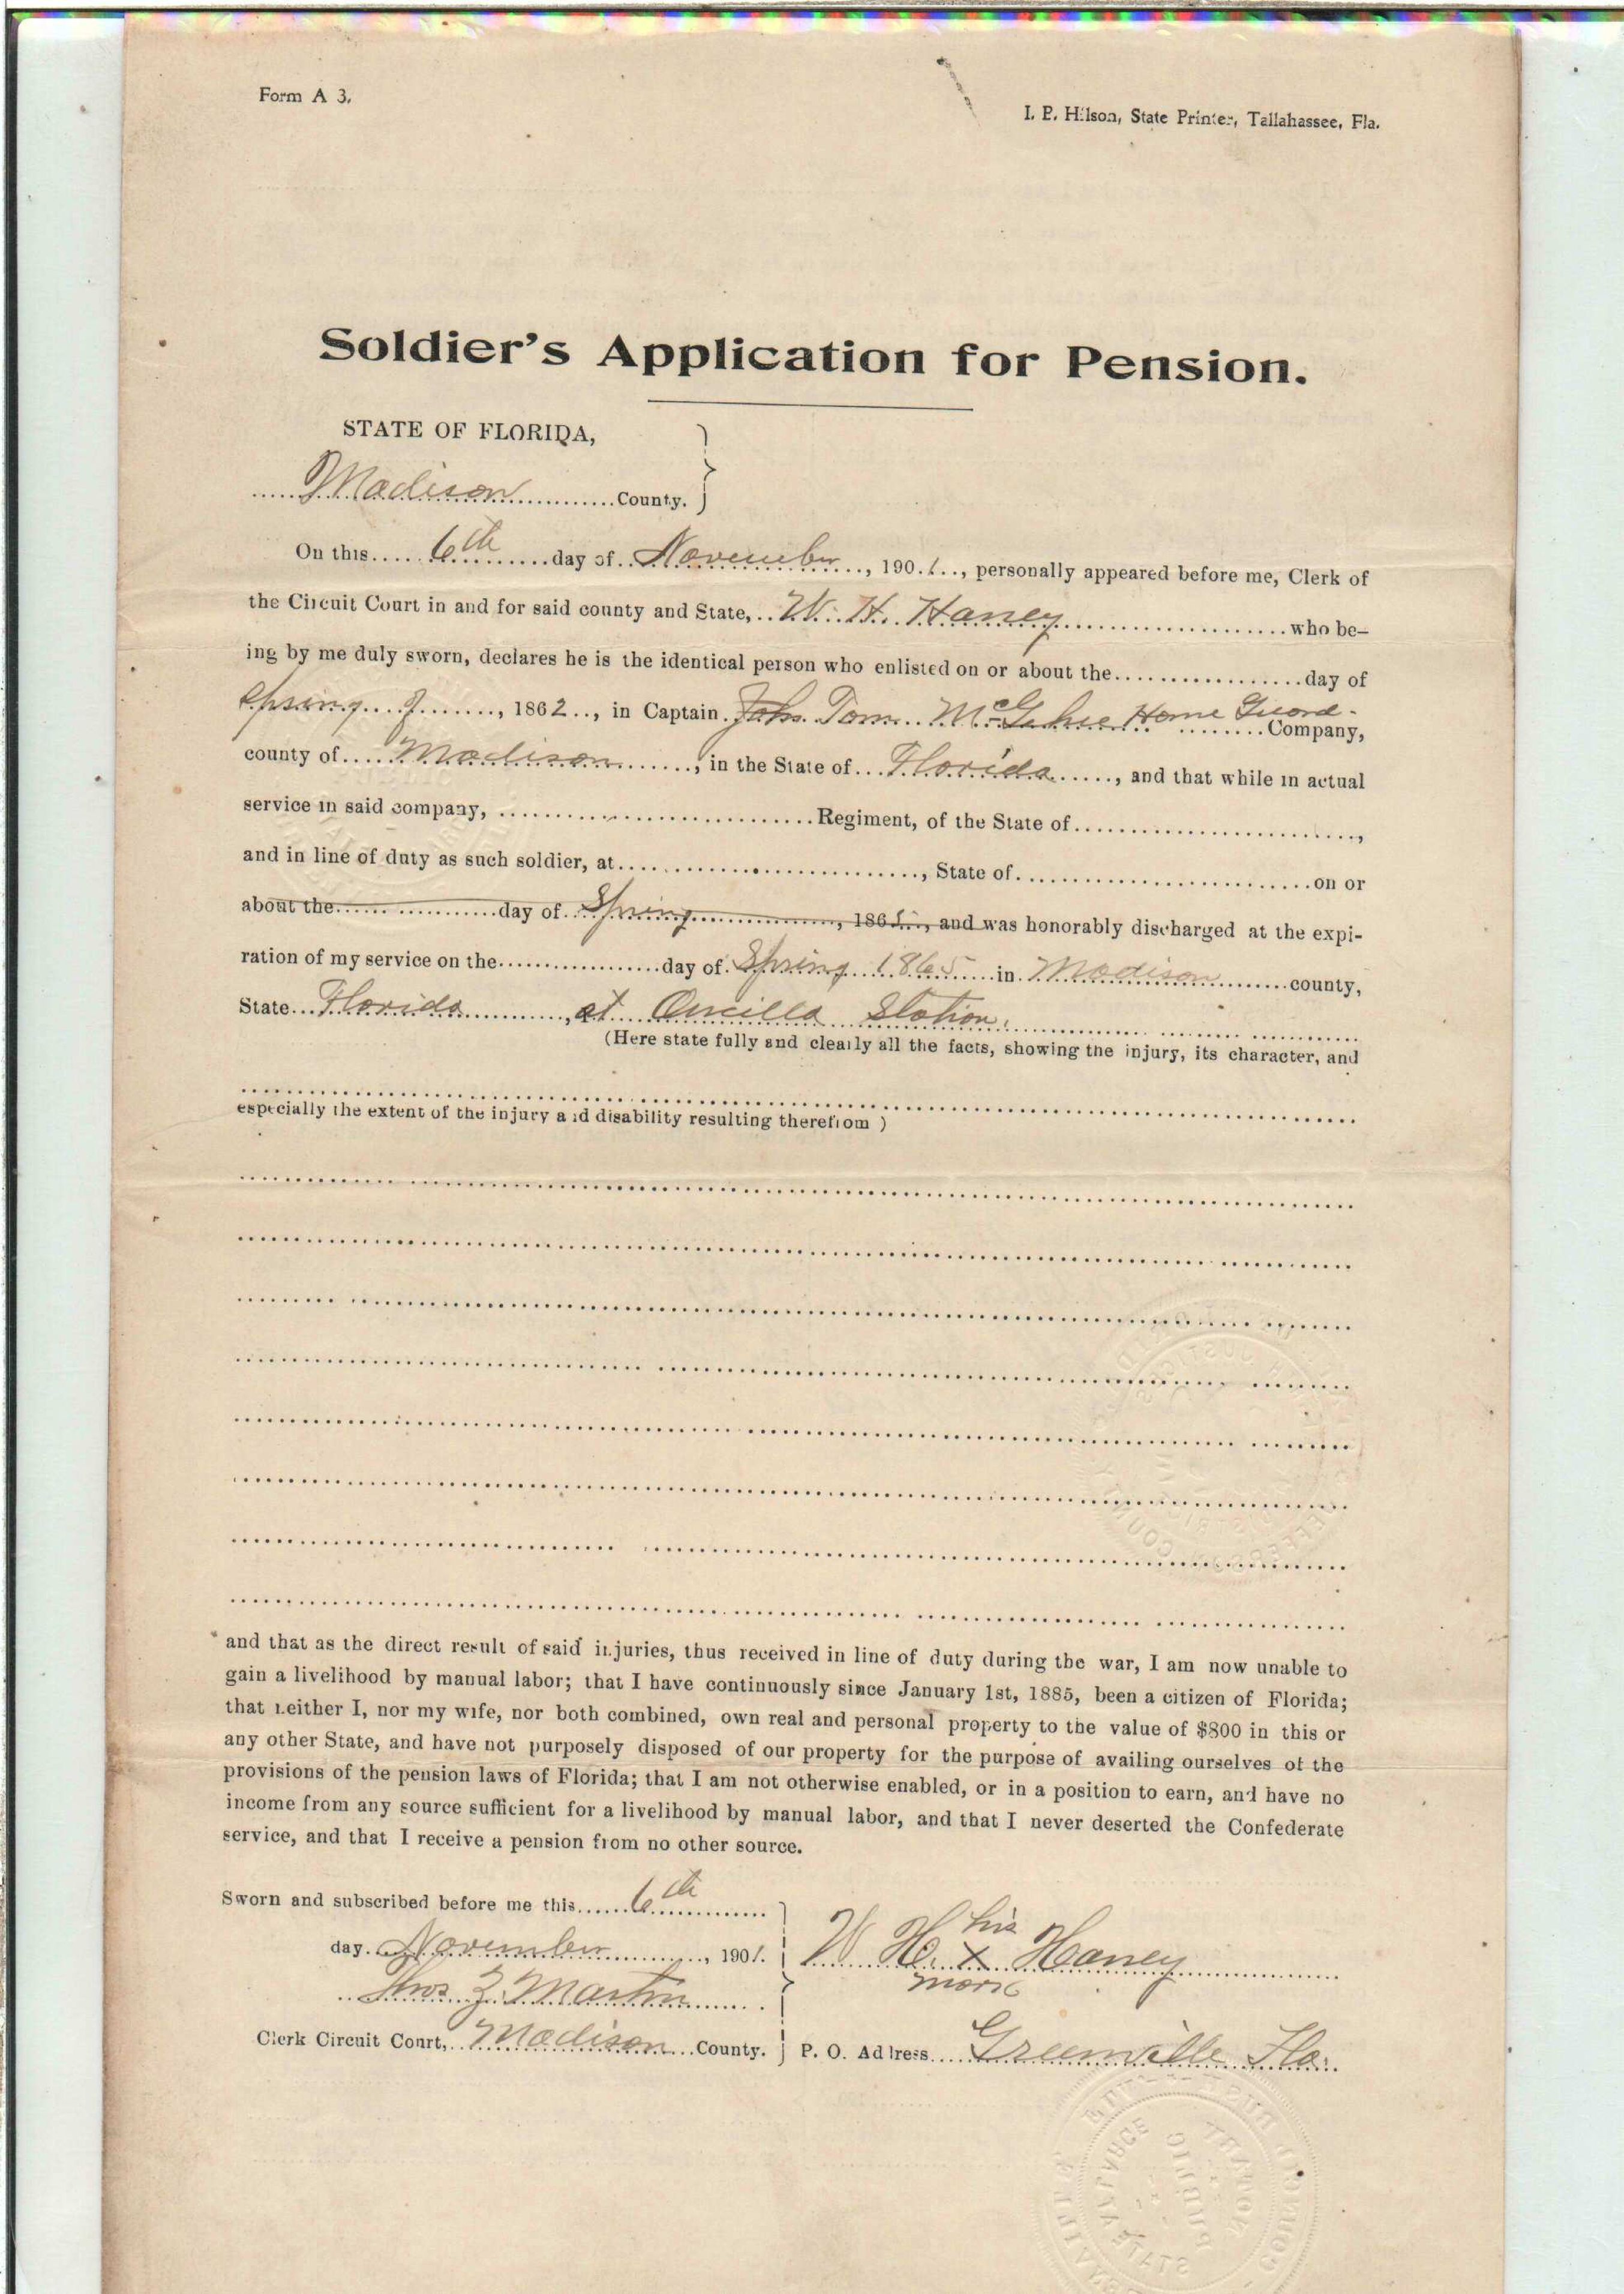 Form A 3.
I. E. Hilson, State Printer, Tallahassee, Fla.
Soldier's Application for Pension.
STATE OF FLORIDA,
Madison County.
On this 6th day of November, 1901, personally appeared before me, Clerk of
the Circuit Court in and for said county and State, W. H. Haney who be-
ing by me duly sworn, declares he is the identical person who enlisted on or about the day of
Spring of, 1862, in Captain John Tom McGehee Home Guard Company,
county of Madison, in the State of Florida, and that while in actual
service in said company, Regiment, of the State of,
and in line of duty as such soldier, at, State of on or
about the day of Spring, 186, and was honorably discharged at the expi-
ration of my service on the day of Spring 1865 in Madison county,
State Florida, at Aucilla Station.
(Here state fully and clearly all the facts, showing the injury, its character, and
especially the extent of the injury and disability resulting therefrom )
and that as the direct result of said injuries, thus received in line of duty during the war, I am now unable to
gain a livelihood by manual labor; that I have continuously since January 1st, 1885, been a citizen of Florida;
that neither I, nor my wife, nor both combined, own real and personal property to the value of $800 in this or
any other State, and have not purposely disposed of our property for the purpose of availing ourselves of the
provisions of the pension laws of Florida; that I am not otherwise enabled, or in a position to earn, and have no
income from any source sufficient for a livelihood by manual labor, and that I never deserted the Confederate
service, and that I receive a pension from no other source.
Sworn and subscribed before me this 6th
day November, 1901.
his
W H. x Haney
mark
Thos Z. Martin
Clerk Circuit Court, Madison County.
P. O. Address Greenville Fla.